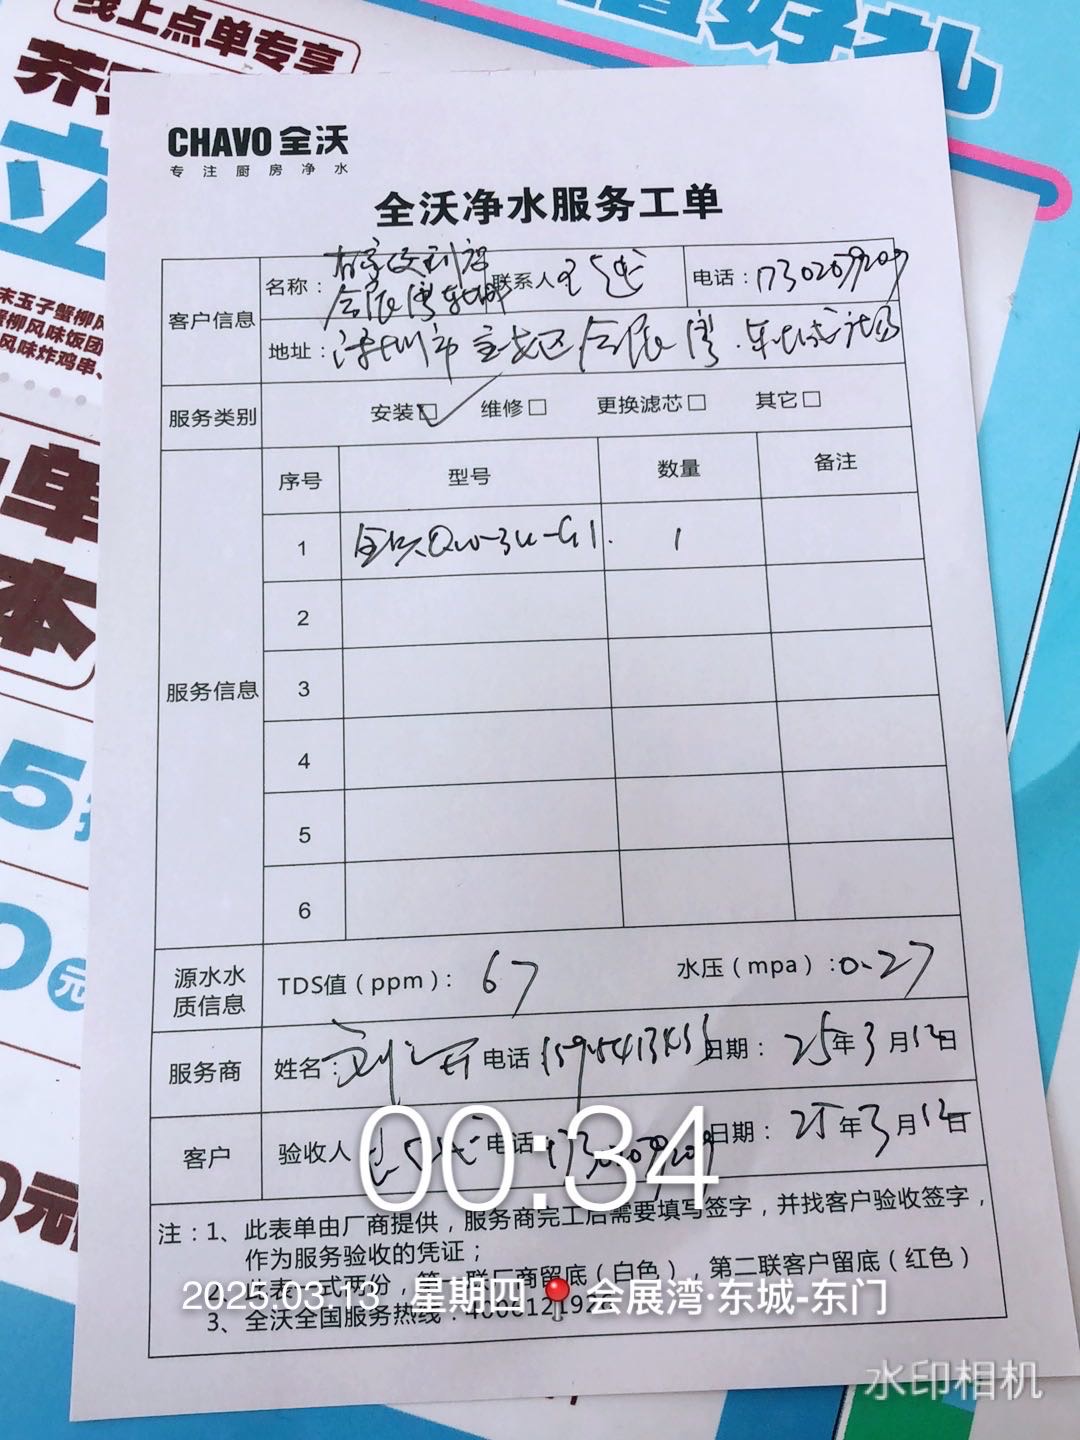 线上点单专享
好礼
立
末玉子蟹柳风
蟹柳风味饭团
风味炸鸡串、
单
本
5
0元
0元
CHAVO 全沃
专注厨房净水
全沃净水服务工单
客户信息
名称：有家便利店
会展湾东城
联系人
电话：17302079209
地址：深圳市宝安区会展湾·东城广场
服务类别
安装☑ 维修□ 更换滤芯□ 其它□
服务信息
序号 型号 数量 备注
1 全沃QW-3U-G1. 1
2
3
4
5
6
源水水质信息
TDS值（ppm）：67 水压（mpa）：0.27
服务商 姓名：刘 电话 日期：25年3月12日
客户 验收人 电话 日期：25年3月12日
00:34
注：1、此表单由厂商提供，服务商完工后需要填写签字，并找客户验收签字，
作为服务验收的凭证；
2、此表一式两份，第一联厂商留底（白色），第二联客户留底（红色）
2025.03.13 星期四 会展湾·东城-东门
3、全沃全国服务热线：4006121926
水印相机